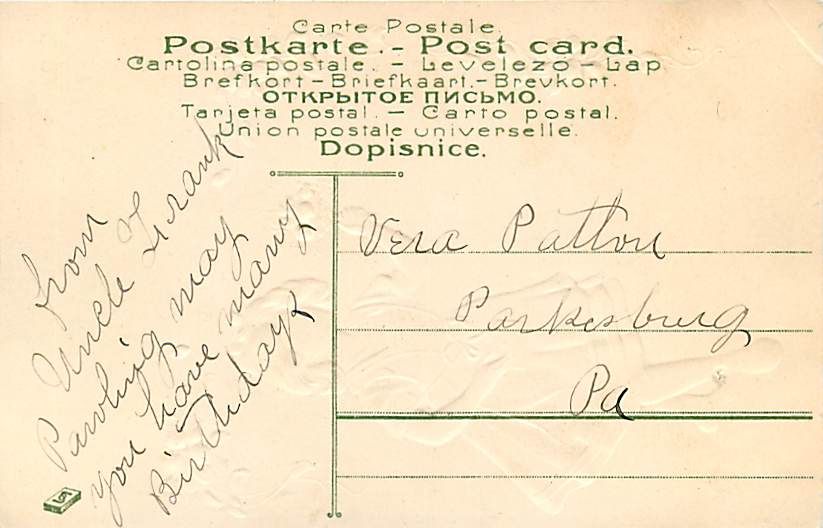 Carte Postale.
Postkarte. - Post card.
Cartolina postale. - Levelezo - Lap
Brefkort - Briefkaart. - Brevkort.
ОТКРЫТОЕ ПИСЬМО.
Tarjeta postal. - Carto postal.
Union postale universelle.
Dopisnice.
from
Uncle Frank
Pawling may
you have many
Birthdays
Vera Patton
Parkesburg
Pa